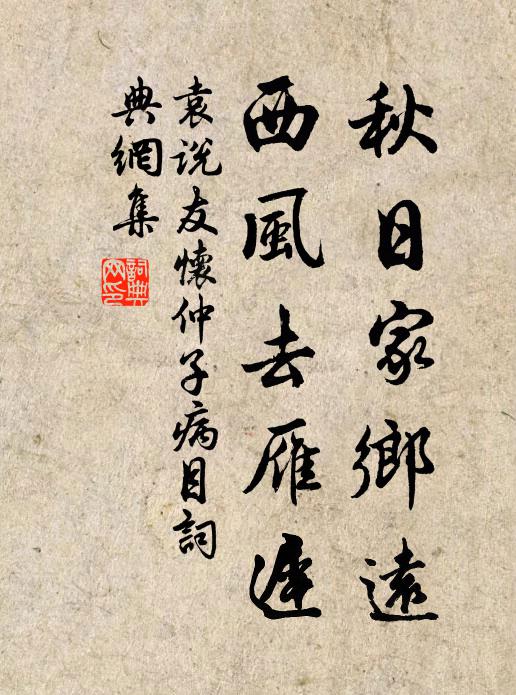 秋日家鄉遠
西風去雁遲
袁说友懷仲子病目詞
典網集
詞典
网印